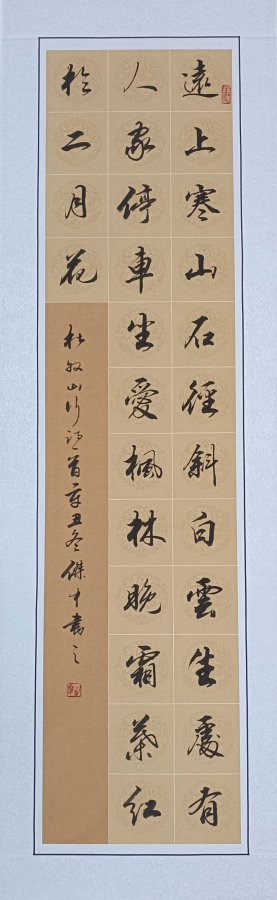 遠上寒山石徑斜白雲生處有
人家停車坐愛楓林晚霜葉紅
於二月花
杜牧山行詩首辛丑冬傑書之